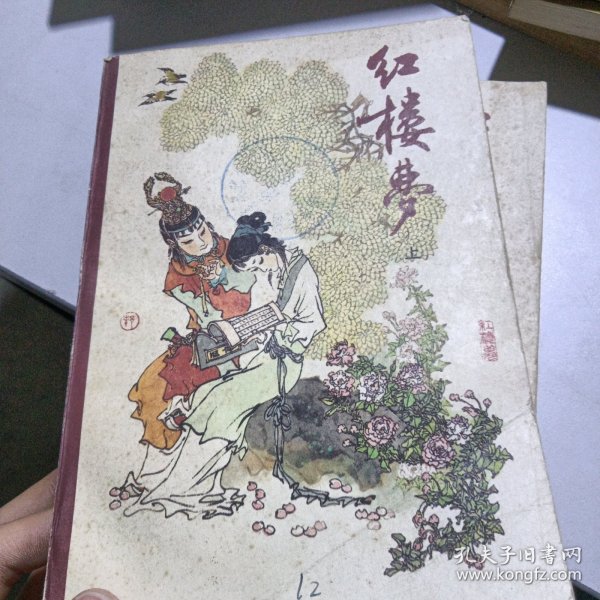 红楼梦
上
红楼梦
12
孔夫子旧书网
www.kongfz.com